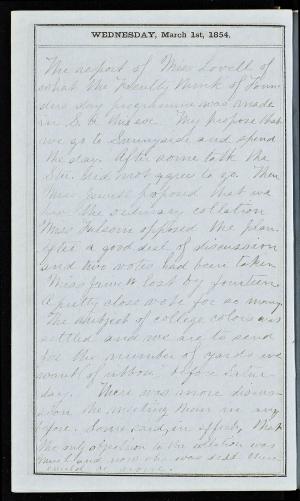 WEDNESDAY, March 1st, 1854.
The report of Miss Lovell of
what the Faculty think of Foun
ders day programme was made
in S. A. They propose that
we go to Sunnyside and spend
the day. After some talk the
Stu. did not agree to go. Then
Miss Jewett proposed that we
have the ordinary collation
Miss Folsom opposed the plan.
After a good deal of discussion
and two votes had been taken
Miss Jewett lost by fourteen
a pretty close vote for so many
The subject of college colors was
settled and we are to send
for the number of yards we
want of ribbon before Satur
day. There was more discus-
sion the meeting than in any
before. Some said, in effect, that
the only objection to the election was
and now she was